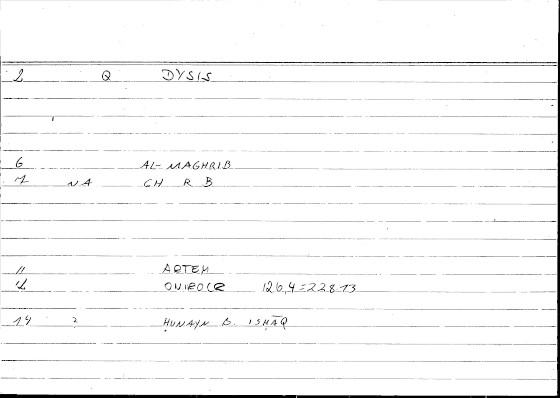 2 Q DYSIS
6 AL-MAGHRIB
7 NA GH R B
11 ARTEM
12 ONIROCR 126,4 = 228.13
14 ? ḤUNAYN B. ISḤĀQ